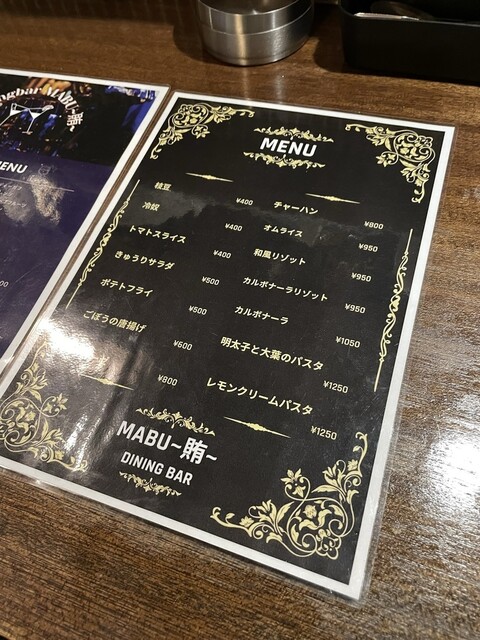 MABU~賄~
MENU
枝豆 ¥400
冷奴 ¥400
トマトスライス ¥400
きゅうりサラダ ¥600
ポテトフライ ¥500
ごぼうの唐揚げ ¥600
¥800
チャーハン ¥800
オムライス ¥950
和風リゾット ¥950
カルボナーラリゾット ¥950
カルボナーラ ¥1050
明太子と大葉のパスタ ¥1250
レモンクリームパスタ ¥1250
MABU~賄~
DINING BAR